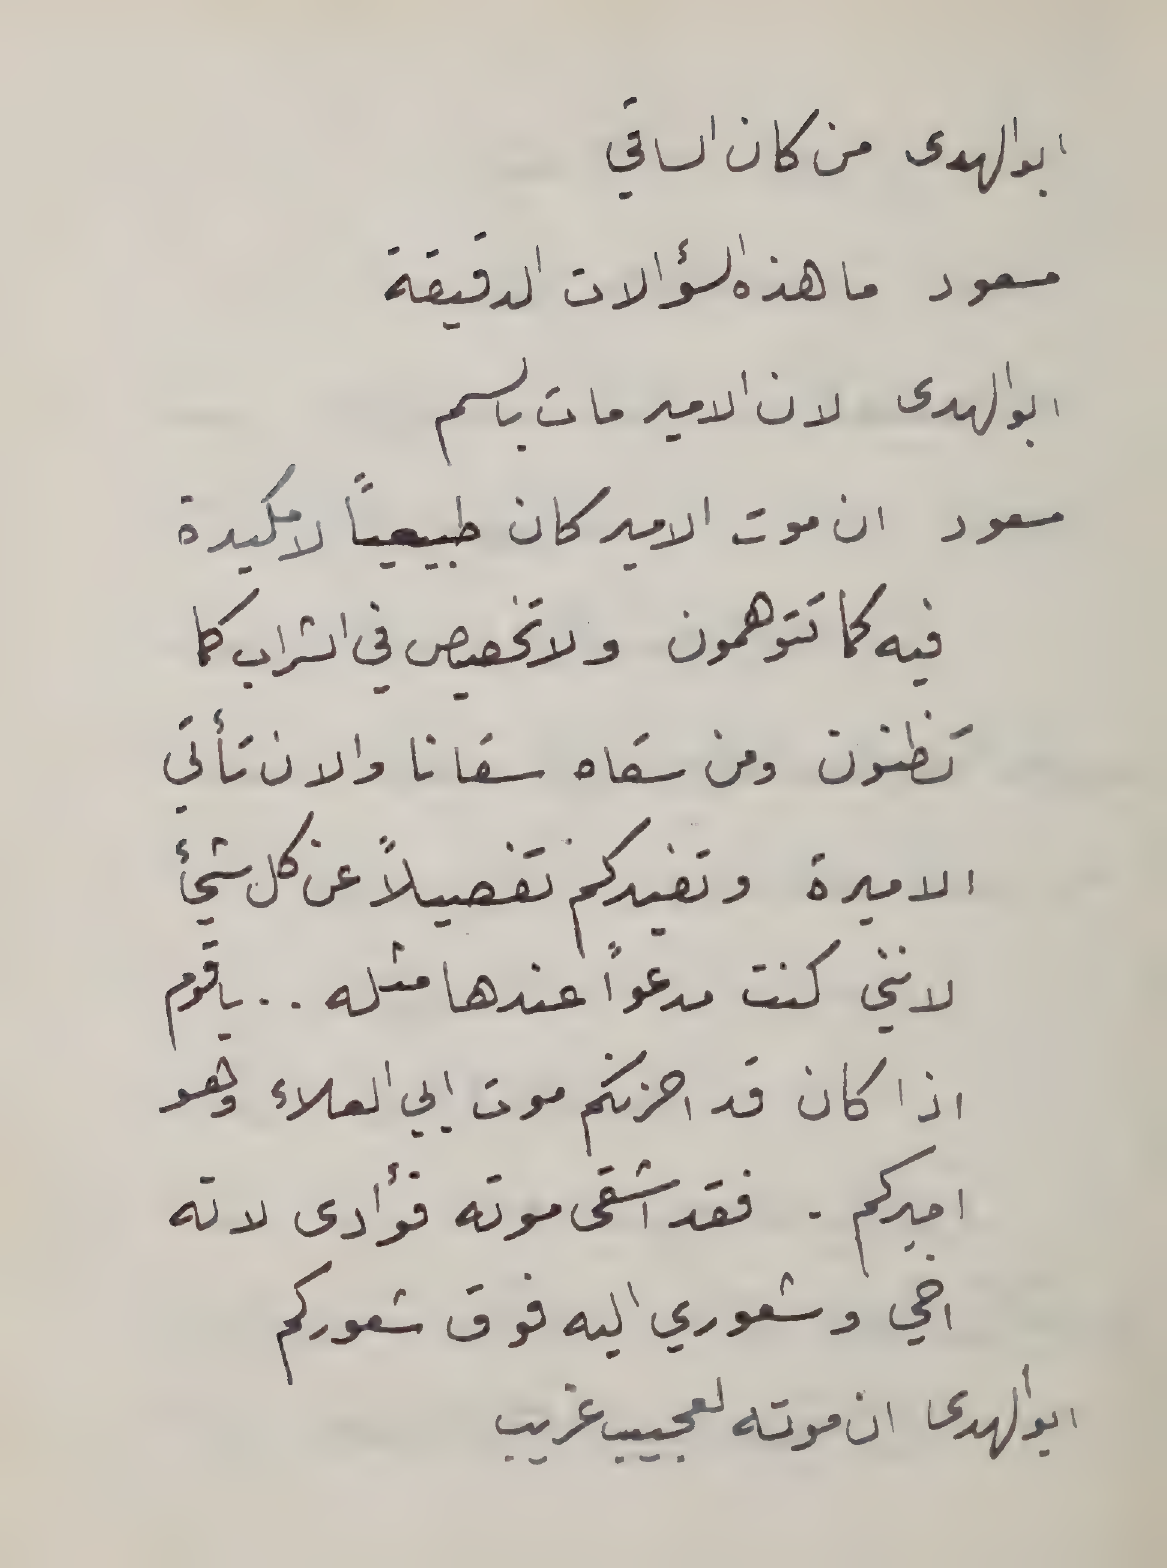 ابو الهدى من كان الساقي
مسعود ما هذه السؤالات الدقيقة
ابو الهدى لان الامير مات بالسم
مسعود ان موت الامير كان طبيعياً لا مكيدة
فيه كما تتوهمون ولا تخصيص في الشراب كما
تظنون ومن سقاه سقانا والان تأتي
الاميرة وتفيدكم تفصيلاً عن كل شيئ
لانني كنت مدعواً عندها مثله .. يا قوم
اذا كان قد احزنكم موت ابي العلاء وهو
اميركم . فقد اشقى موته فؤادى لانه
اخي وشعوري اليه فوق شعوركم
ابو الهدى ان موته لعجيب غريب